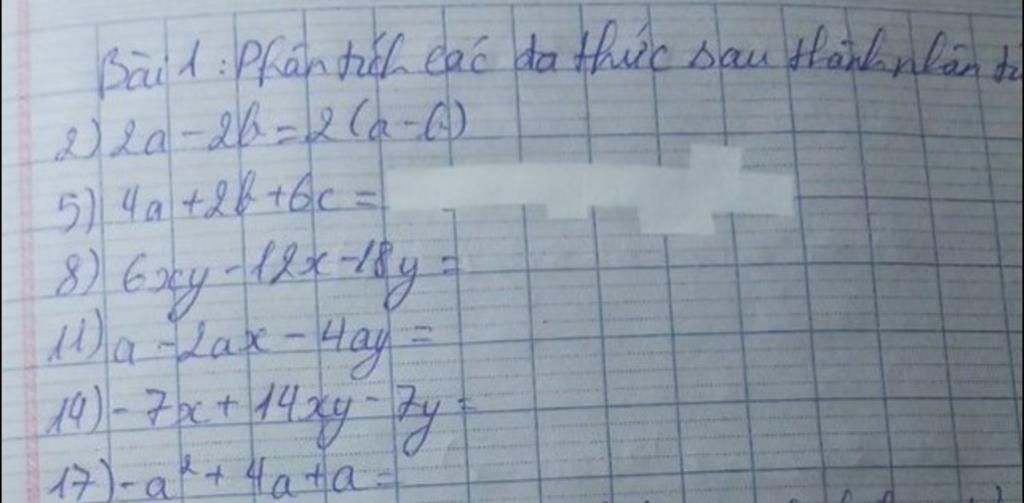 Bài 1: Phân tích các đa thức sau thành nhân
2) 2a - 2b = 2(a - b)
5) 4a + 2b + 6c =
8) 6xy - 12x - 18y =
11) a - 2ax - 4ay =
14) - 7x + 14xy - 7y =
17) - a² + 4a + a =